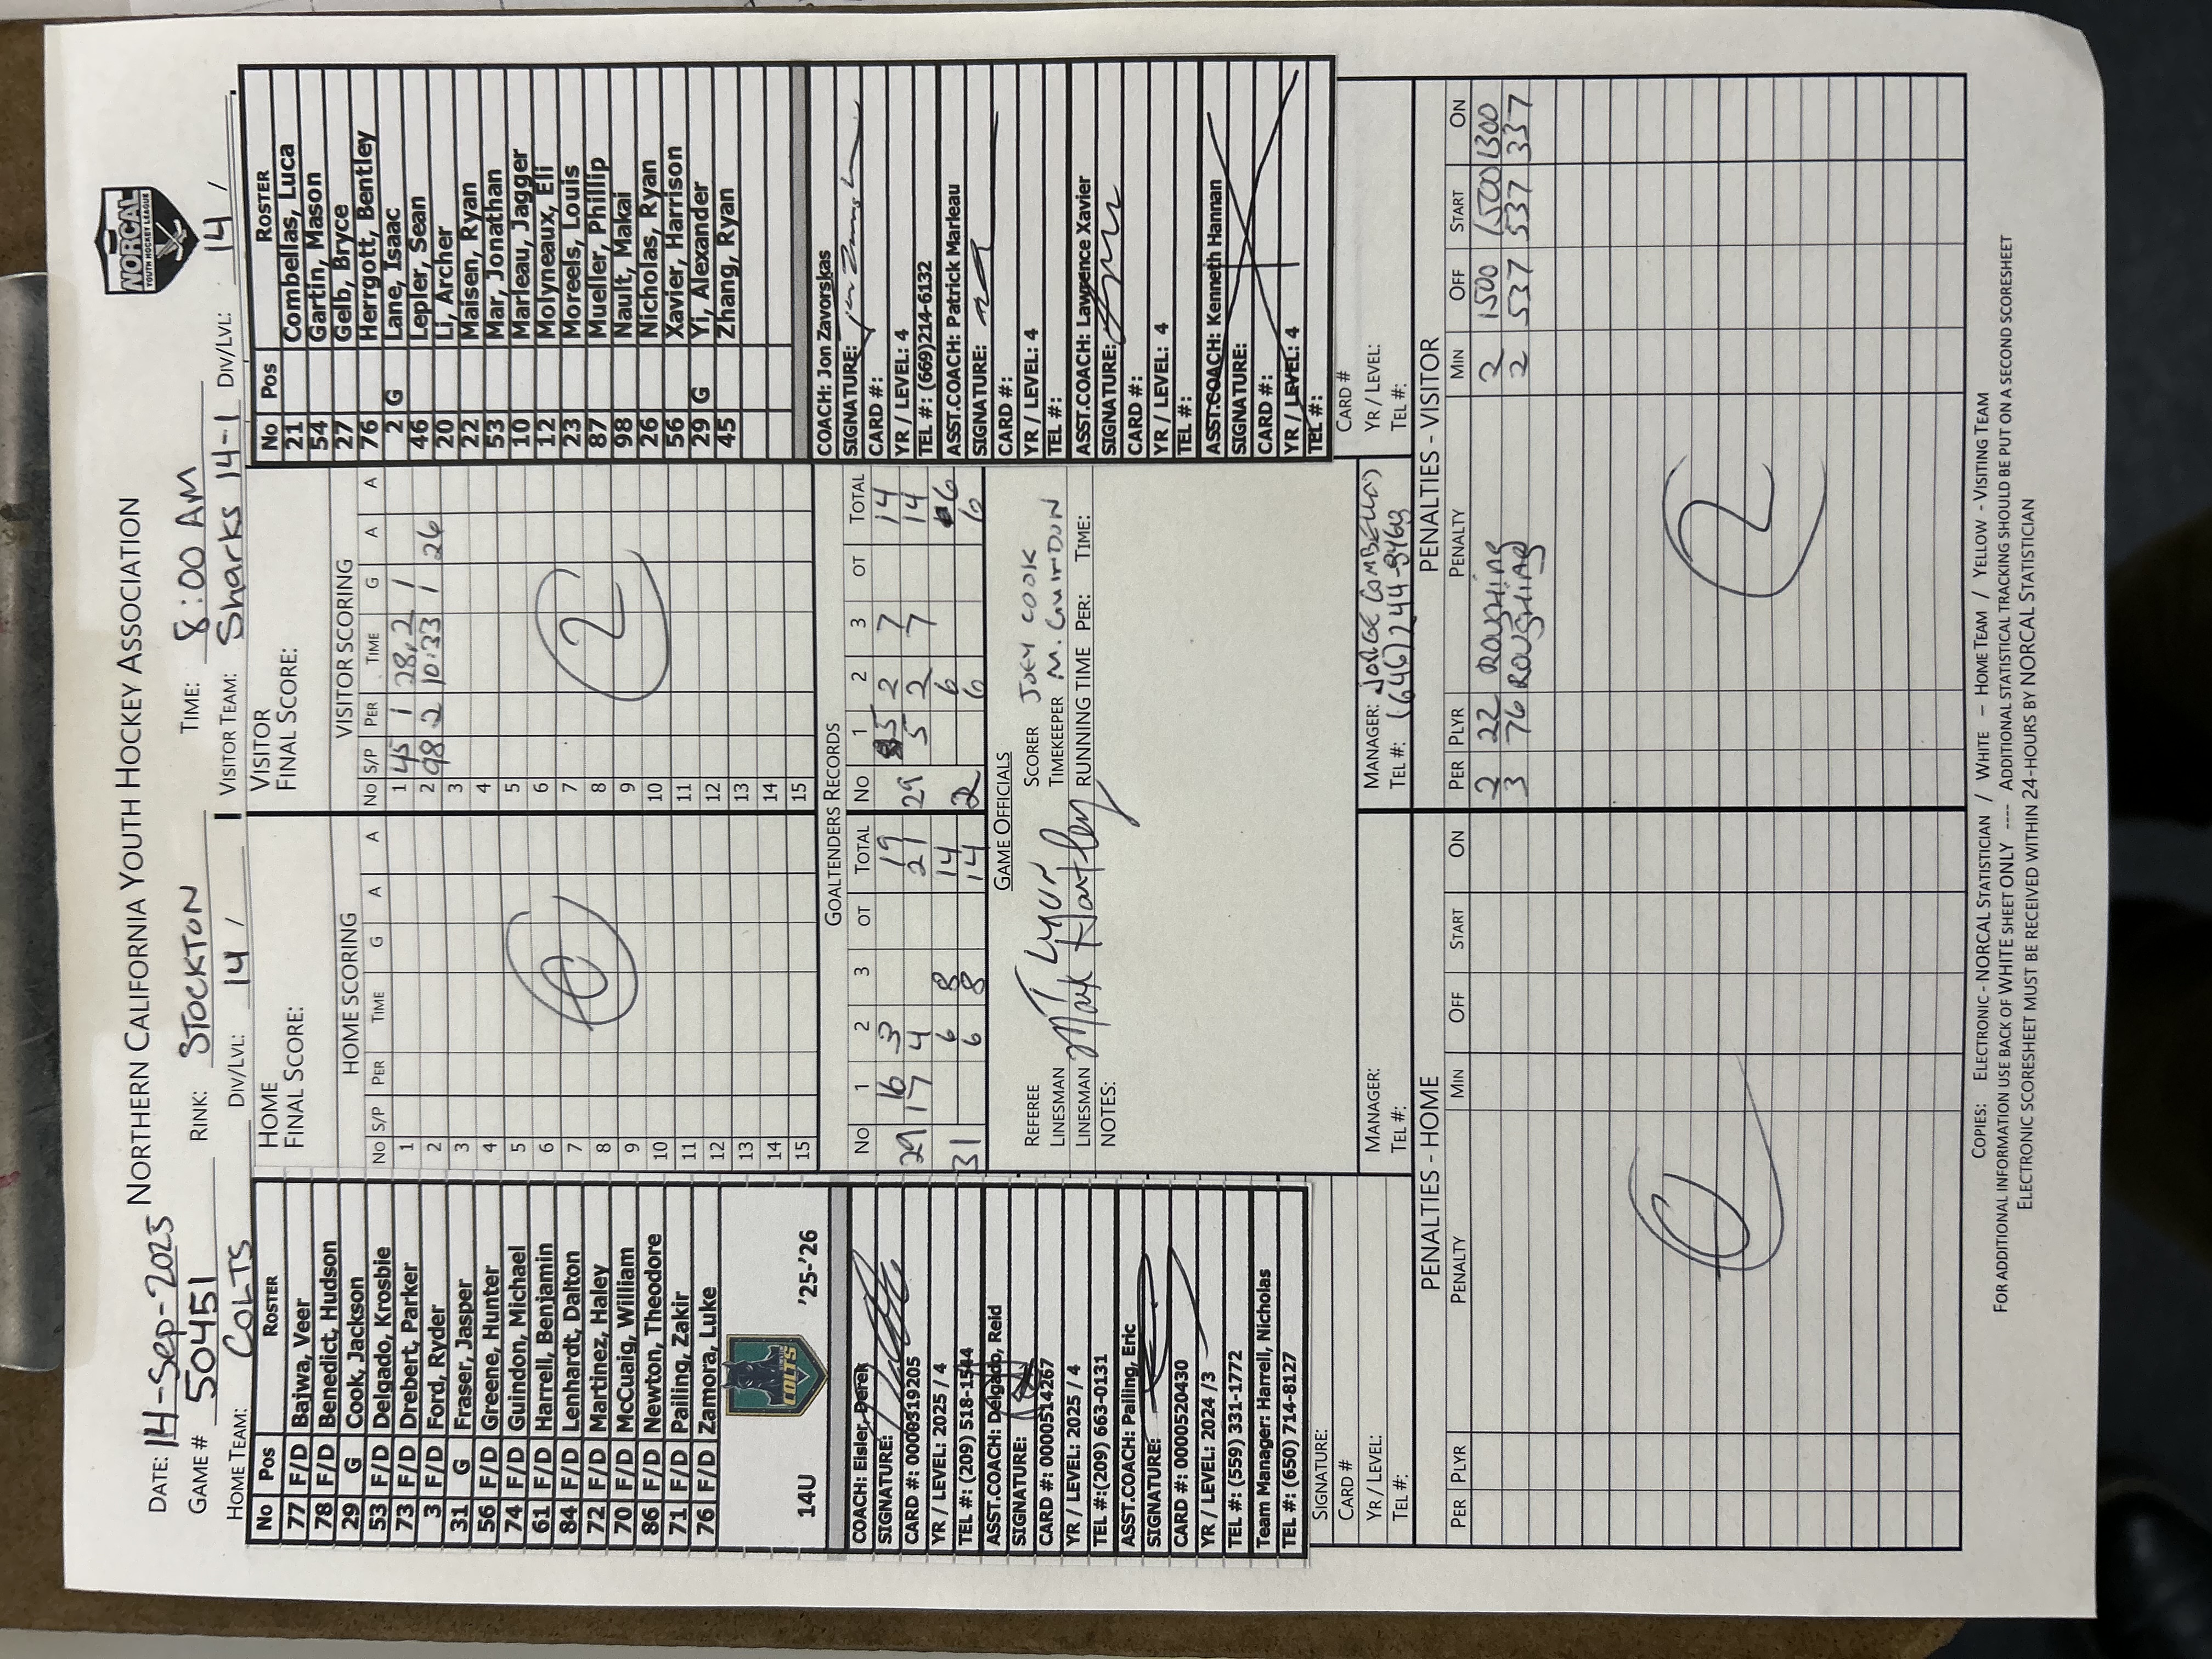 NORTHERN CALIFORNIA YOUTH HOCKEY ASSOCIATION
NORCAL
YOUTH HOCKEY LEAGUE
DATE: 14-Sep-2025
GAME # 50451 RINK: STOCKTON TIME: 8:00 AM
HOME TEAM: COLTS DIV/LVL: 14 / VISITOR TEAM: Sharks 14-1 DIV/LVL: 14 /
No Pos ROSTER
77 F/D Bajwa, Veer
78 F/D Benedict, Hudson
29 G Cook, Jackson
53 F/D Delgado, Krosbie
73 F/D Drebert, Parker
3 F/D Ford, Ryder
31 G Fraser, Jasper
56 F/D Greene, Hunter
74 F/D Guindon, Michael
61 F/D Harrell, Benjamin
84 F/D Lenhardt, Dalton
72 F/D Martinez, Haley
70 F/D McCuaig, William
86 F/D Newton, Theodore
71 F/D Pailing, Zakir
76 F/D Zamora, Luke
14U COLTS '25-'26
COACH: Eisler, Derek
SIGNATURE:
CARD #: 0000319205
YR / LEVEL: 2025 / 4
TEL #: (209) 518-1544
ASST.COACH: Delgado, Reid
SIGNATURE:
CARD #: 0000514267
YR / LEVEL: 2025 / 4
TEL #:(209) 663-0131
ASST.COACH: Pailing, Eric
SIGNATURE:
CARD #: 0000520430
YR / LEVEL: 2024 /3
TEL #: (559) 331-1772
Team Manager: Harrell, Nicholas
TEL #: (650) 714-8127
SIGNATURE:
CARD #
YR / LEVEL:
TEL #:
HOME
FINAL SCORE:
HOME SCORING
No S/P PER TIME G A A
1
2
3
4
5
6
7
8
9
10
11
12
13
14
15
0
VISITOR
FINAL SCORE:
VISITOR SCORING
No S/P PER TIME G A A
1 45 1 28.2 1
2 98 2 10:33 1 26
3
4
5
6
7
8
9
10
11
12
13
14
15
2
GOALTENDERS RECORDS
No 1 2 3 OT TOTAL No 1 2 3 OT TOTAL
29 16 3 19 29 5 2 7 14
17 4 21 5 2 7 14
31 6 8 14 2 6 6
6 8 14 6 6
GAME OFFICIALS
REFEREE T Lyur SCORER JOEY COOK
LINESMAN Mark Hartley TIMEKEEPER M. GUINDON
LINESMAN RUNNING TIME PER: TIME:
NOTES:
MANAGER:
TEL #:
MANAGER: JORGE COMBELLAS
TEL #: (646)244-9469
No Pos ROSTER
21 Combellas, Luca
54 Gartin, Mason
27 Gelb, Bryce
76 Herrgott, Bentley
2 G Lane, Isaac
46 Lepler, Sean
20 Li, Archer
22 Maisen, Ryan
53 Mar, Jonathan
10 Marleau, Jagger
12 Molyneaux, Eli
23 Moreels, Louis
87 Mueller, Phillip
98 Nault, Makai
26 Nicholas, Ryan
56 Xavier, Harrison
29 G Yi, Alexander
45 Zhang, Ryan
COACH: Jon Zavorskas
SIGNATURE:
CARD #:
YR / LEVEL: 4
TEL #: (669)214-6132
ASST.COACH: Patrick Marleau
SIGNATURE:
CARD #:
YR / LEVEL: 4
TEL #:
ASST.COACH: Lawrence Xavier
SIGNATURE:
CARD #:
YR / LEVEL: 4
TEL #:
ASST.COACH: Kenneth Hannan
SIGNATURE:
CARD #:
YR / LEVEL: 4
TEL #:
CARD #
YR / LEVEL:
TEL #:
PENALTIES - HOME
PER PLYR PENALTY MIN OFF START ON
0
PENALTIES - VISITOR
PER PLYR PENALTY MIN OFF START ON
2 22 ROUGHING 2 1500 1500 1300
3 76 ROUGHING 2 537 537 337
2
COPIES: ELECTRONIC - NORCAL STATISTICIAN / WHITE – HOME TEAM / YELLOW - VISITING TEAM
FOR ADDITIONAL INFORMATION USE BACK OF WHITE SHEET ONLY ---- ADDITIONAL STATISTICAL TRACKING SHOULD BE PUT ON A SECOND SCORESHEET
ELECTRONIC SCORESHEET MUST BE RECEIVED WITHIN 24-HOURS BY NORCAL STATISTICIAN